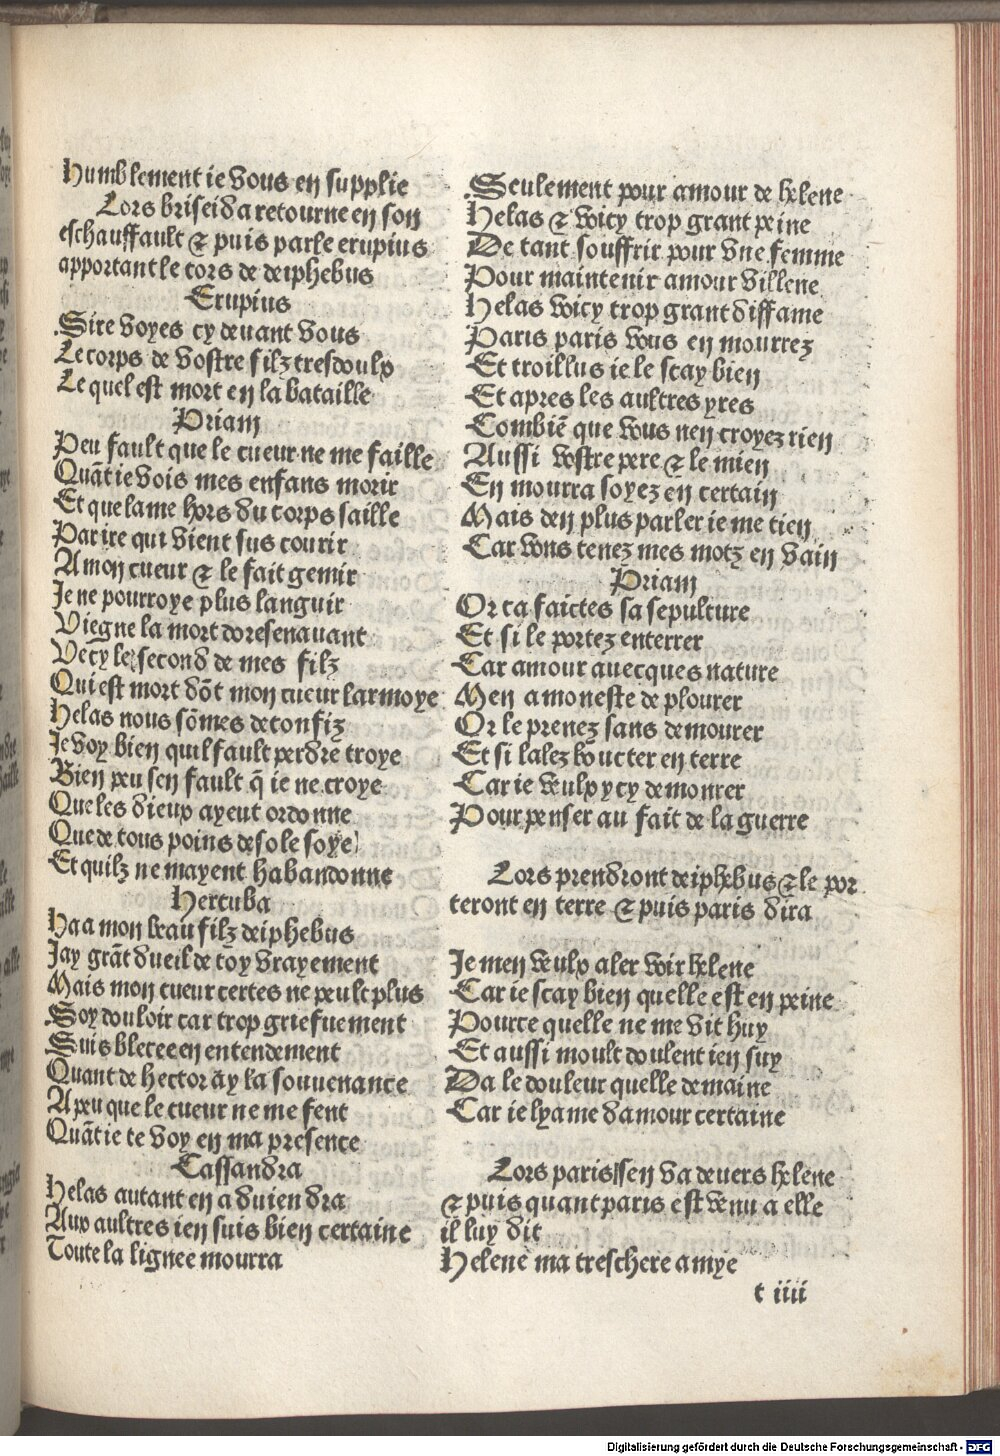 Humblement ie vous en supplie
Lors briseida retourne en son
eschauffault & puis parle erupius
apportant le cors de deiphebus
Erupius
Sire voyes cy deuant vous
Le corps de vostre filz tresdoulx
Le quel est mort en la bataille
Priam
Peu fault que le cueur ne me faille
Quāt ie vois mes enfans morir
Et que lame hors du corps saille
Par ire qui vient sus courir
A mon cueur & le fait gemir
Je ne pourroye plus languir
Viegne la mort doresenauant
Vecy le second de mes filz
Qui est mort dōt mon cueur larmoye
Helas nous sōmes deconfiz
Je voy bien quil fault perdre troye
Bien peu sen fault q̄ ie ne croye
Que les dieux ayent ordonne
Que de tous poins desole soye
Et quilz ne mayent habandonne
Hercuba
Haa mon beau filz deiphebus
Jay grāt dueil de toy vrayement
Mais mon cueur certes ne peult plus
Soy douloir car trop griefuement
Suis blecee en entendement
Quant de hector ay la souuenance
A peu que le cueur ne me fent
Quāt ie te voy en ma presence
Cassandra
Helas autant en aduiendra
Aux aultres ien suis bien certaine
Toute la lignee mourra
Seulement pour amour de helene
Helas & voicy trop grant peine
De tant souffrir pour vne femme
Pour maintenir amour villene
Helas voicy trop grant diffame
Paris paris vous en mourrez
Et troillus ie le scay bien
Et apres les aultres yres
Combiē que vous nen croyez rien
Aussi vostre pere & le mien
En mourra soyez en certain
Mais den plus parler ie me tien
Car vous tenez mes motz en vain
Priam
Or ca faictes sa sepulture
Et si le portez enterrer
Car amour auecques nature
Men amoneste de plourer
Or le prenez sans demourer
Et si lalez boucter en terre
Car ie veulx ycy demourer
Pour penser au fait de la guerre
Lors prendront deiphebus & le por
teront en terre & puis paris dira
Je men veulx aler voir helene
Car ie scay bien quelle est en peine
Pource quelle ne me vit huy
Et aussi moult doulent ien suy
Da le douleur quelle demaine
Car ie lyame damour certaine
Lors paris sen va deuers helene
& puis quant paris est venu a elle
il luy dit
Helene ma treschere amye
t iiii
Digitalisierung gefördert durch die Deutsche Forschungsgemeinschaft - DFG